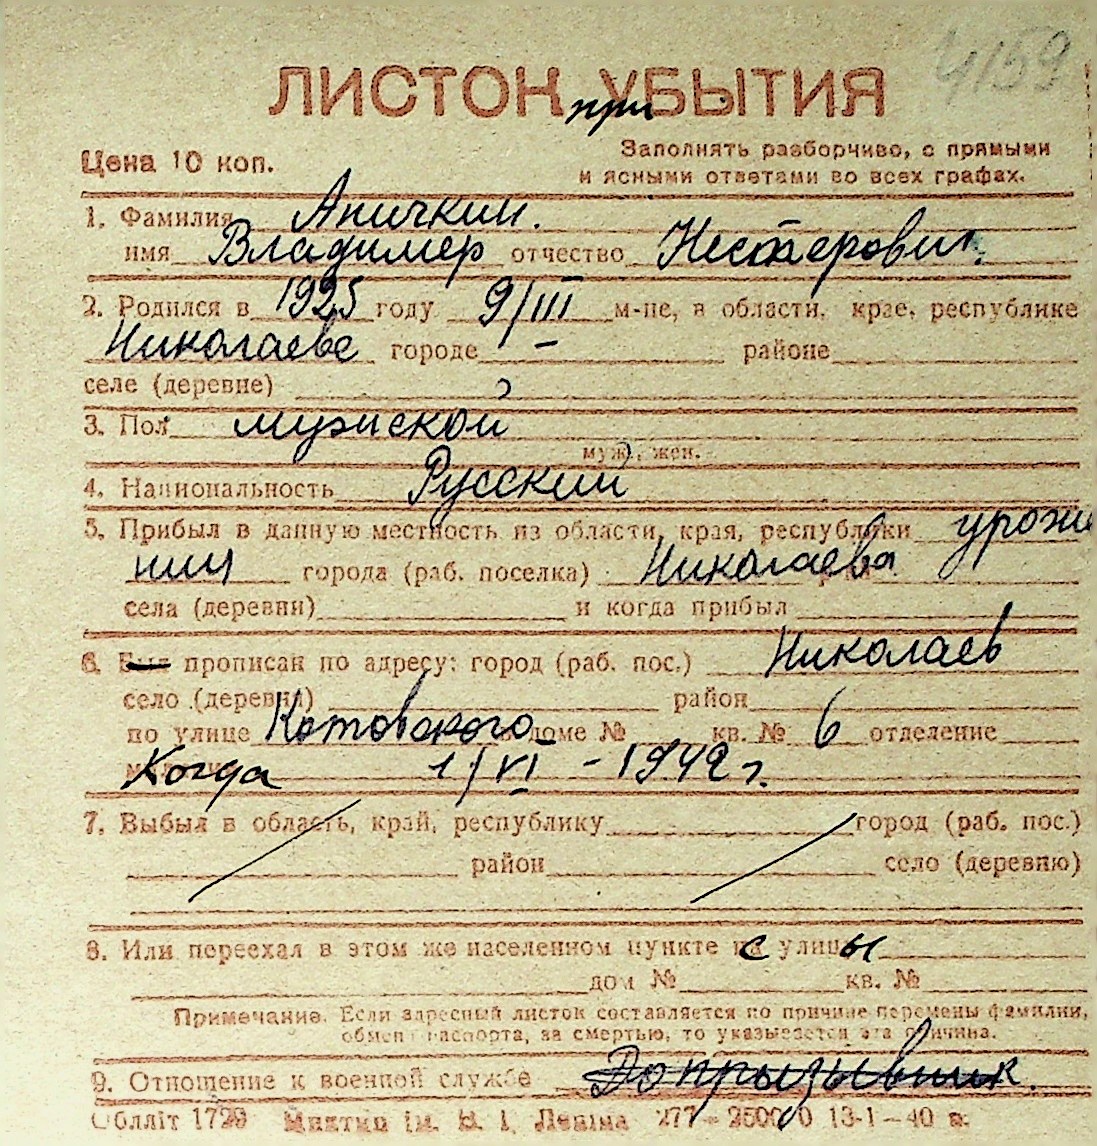 4159
ЛИСТОК при УБЫТИЯ
Цена 10 коп.
Заполнять разборчиво, с прямыми
и ясными ответами во всех графах.
1. Фамилия Аничкин.
имя Владимер отчество Нестерович.
2. Родился в 1925 году 9/III м-це, в области, крае, республике
Николаеве городе — районе
селе (деревне)
3. Пол мужской
муж., жен.
4. Национальность Русский
5. Прибыл в данную местность из области, края, республики уроже
ниц города (раб. поселка) Николаева
села (деревни) и когда прибыл
6. Был прописан по адресу: город (раб. пос.) Николаев
село (деревня) район
по улице Котовского доме № кв. № 6 отделение
Когда 1/VI - 1942 г.
7. Выбыл в область, край, республику город (раб. пос.)
район село (деревню)
8. Или переехал в этом же населенном пункте с улицы
дом № кв. №
Примечание. Если адресный листок составляется по причине перемены фамилии,
обмен паспорта, за смертью, то указывается эта причина.
9. Отношение к военной службе Допризывник.
Облліт 1729 ім. В. І. Леніна 277 13-1-40 в.